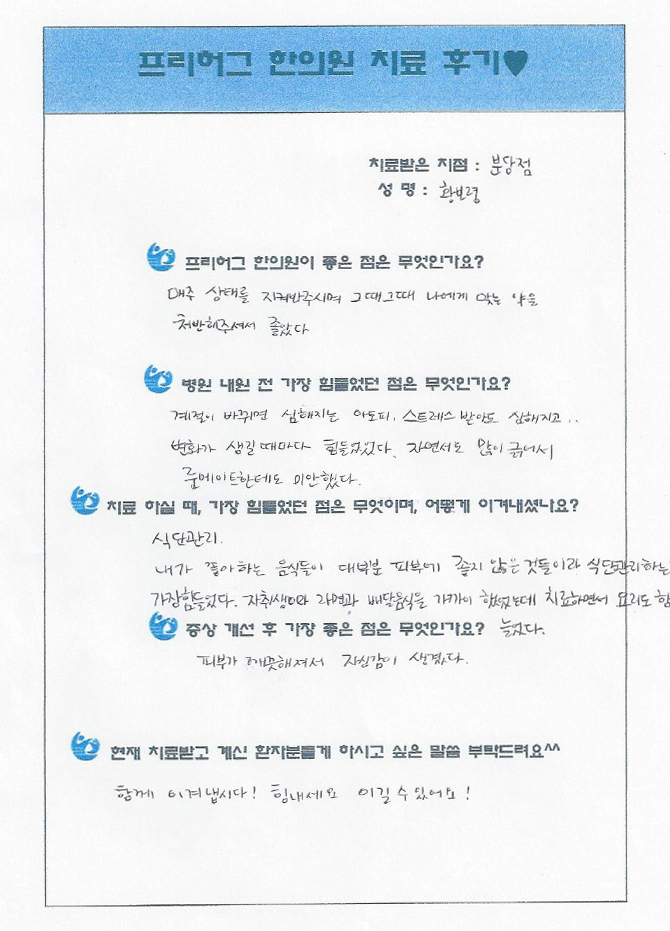 프리허그 한의원 치료 후기♥
치료받은 지점 : 분당점
성 명 : 황보령
프리허그 한의원이 좋은 점은 무엇인가요?
매주 상태를 지켜봐주시며 그때그때 나에게 맞는 약을
처방해주셔서 좋았다
병원 내원 전 가장 힘들었던 점은 무엇인가요?
계절이 바뀌면 심해지는 아토피, 스트레스 받아도 심해지고..
변화가 생길때마다 힘들었었다. 자면서도 많이 긁어서
룸메이트한테도 미안했다.
치료 하실 때, 가장 힘들었던 점은 무엇이며, 어떻게 이겨내셨나요?
식단관리.
내가 좋아하는 음식들이 대부분 피부에 좋지 않은 것들이라 식단관리하는
가장힘들었다. 자취생이라 라면과 배달음식을 가까이 했었는데 치료하면서 요리도 함
늘었다.
증상 개선 후 가장 좋은 점은 무엇인가요?
피부가 깨끗해져서 자신감이 생겼다.
현재 치료받고 계신 환자분들게 하시고 싶은 말씀 부탁드려요^^
함께 이겨냅시다! 힘내세요 이길 수 있어요!